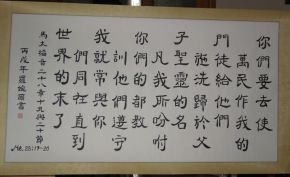 你們要去使
萬民作我的
門徒給他們
施洗歸於父
子聖靈的名
凡我所吩咐
你們的都教
訓他們遵守
我就常與你
們同在直到
世界的末了
馬太福音二十八章十九與二十節
丙戌年 書
28:19-20